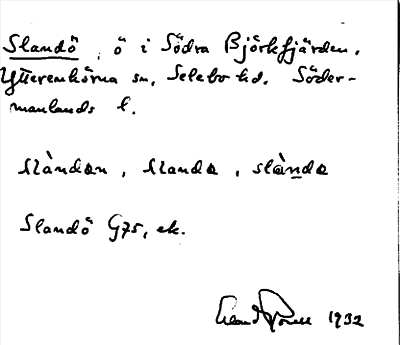 Slandö, ö i Södra Björkfjärden,
Ytterenhörna sn, Selebo hd. Söder-
manlands l.
slàndan, slanda, slànda
Slandö G75, ek.
1932